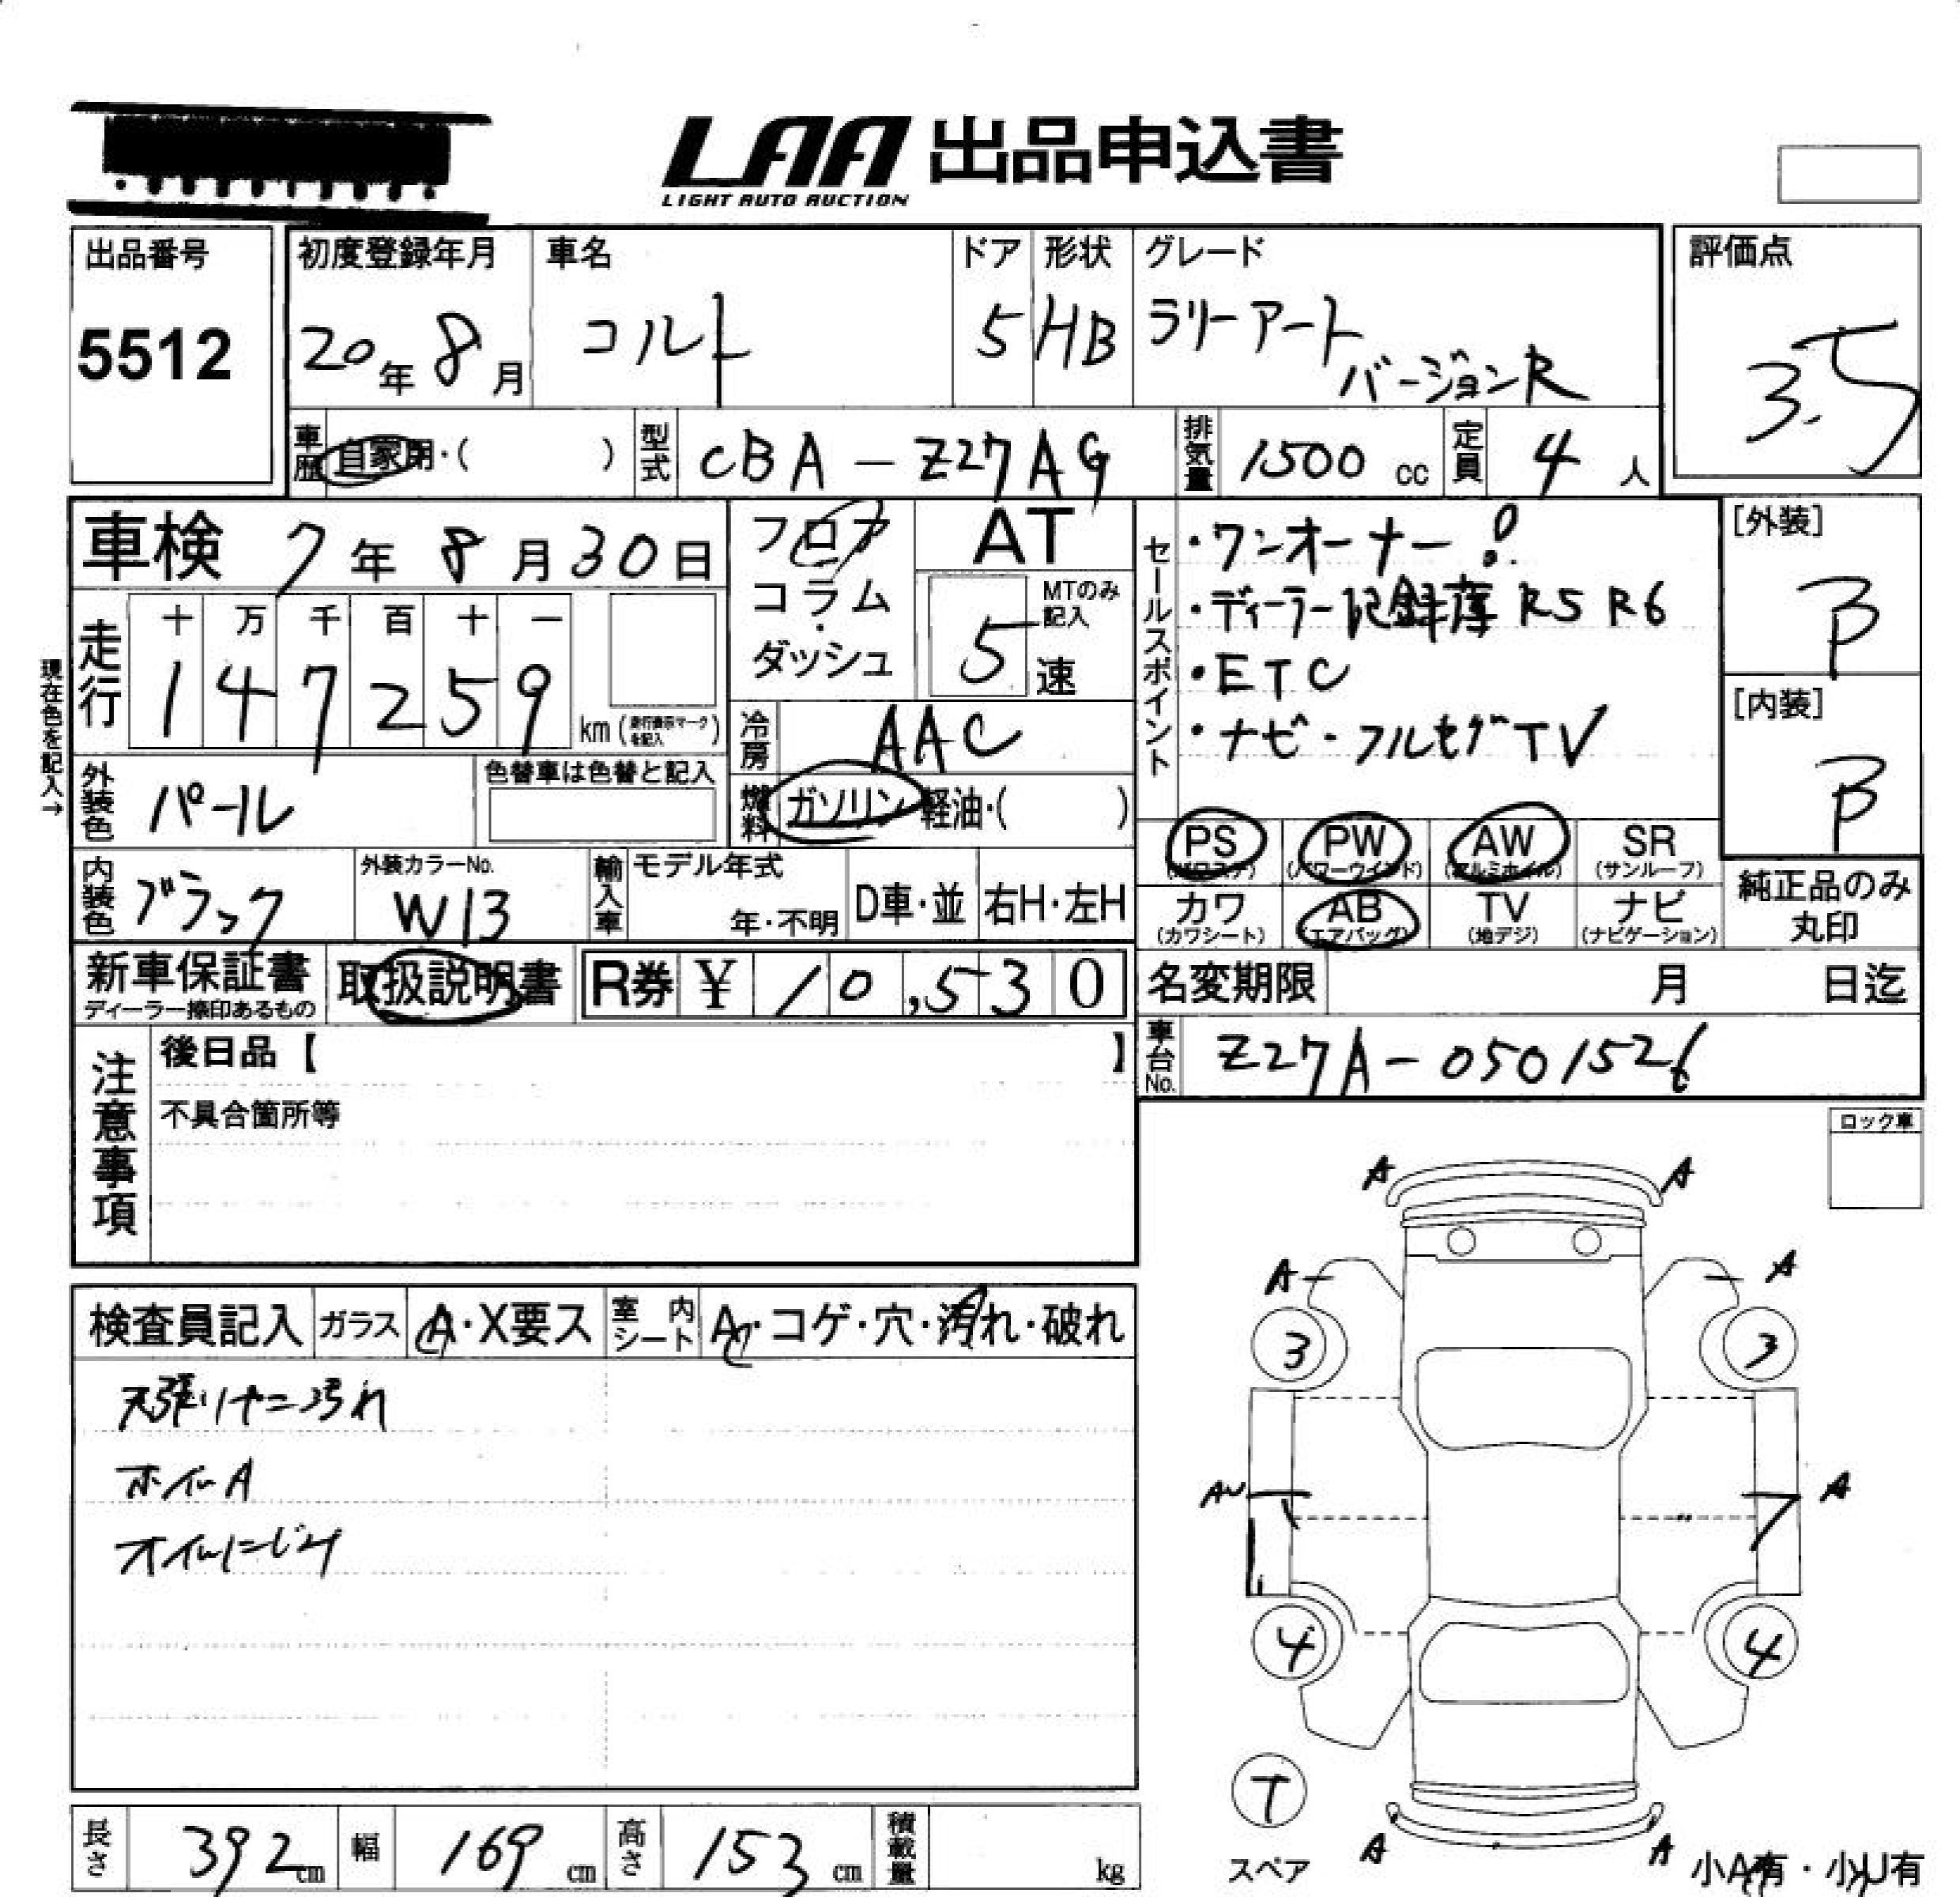 LAA 出品申込書
LIGHT AUTO AUCTION
出品番号
5512
初度登録年月
20年 8月
車名
コルト
ドア
5
形状
HB
グレード
ラリーアート
バージョンR
評価点
3.5
車歴 自家用・( )
型式 CBA-Z27AG
排気量 1500 cc
定員 4 人
車検 7年 8月 30日
フロア
コラム
・
ダッシュ
AT
MTのみ記入
5 速
セールスポイント
・ワンオーナー!
・ディーラー記録簿 R5 R6
・ETC
・ナビ・フルセグTV
[外装]
B
[内装]
B
現在色を記入→
走行
十 万 千 百 十 一
1 4 7 2 5 9
km (走行表示マークを記入)
冷房 AAC
外装色 パール
色替車は色替と記入
燃料 ガソリン・軽油・( )
PS PW AW SR
(パワステ) (パワーウインド) (アルミホイル) (サンルーフ)
カワ AB TV ナビ
(カワシート) (エアバッグ) (地デジ) (ナビゲーション)
純正品のみ
丸印
内装色 ブラック
外装カラーNo.
W13
輸入車
モデル年式
年・不明
D車・並 右H・左H
新車保証書
ディーラー捺印あるもの
取扱説明書
R券 ¥ 10,530
名変期限 月 日迄
車台No. Z27A-0501526
注意事項
後日品【 】
不具合箇所等
ロック車
検査員記入 ガラス A・X要ス 室内シート A・コゲ・穴・汚れ・破れ
天張りヤニ汚れ
ホイルA
オイルにじみ
A A
A A
3 3
AU A
4 4
T
スペア
A A
小A有・小U有
長さ 392 cm 幅 169 cm 高さ 153 cm 積載量 kg